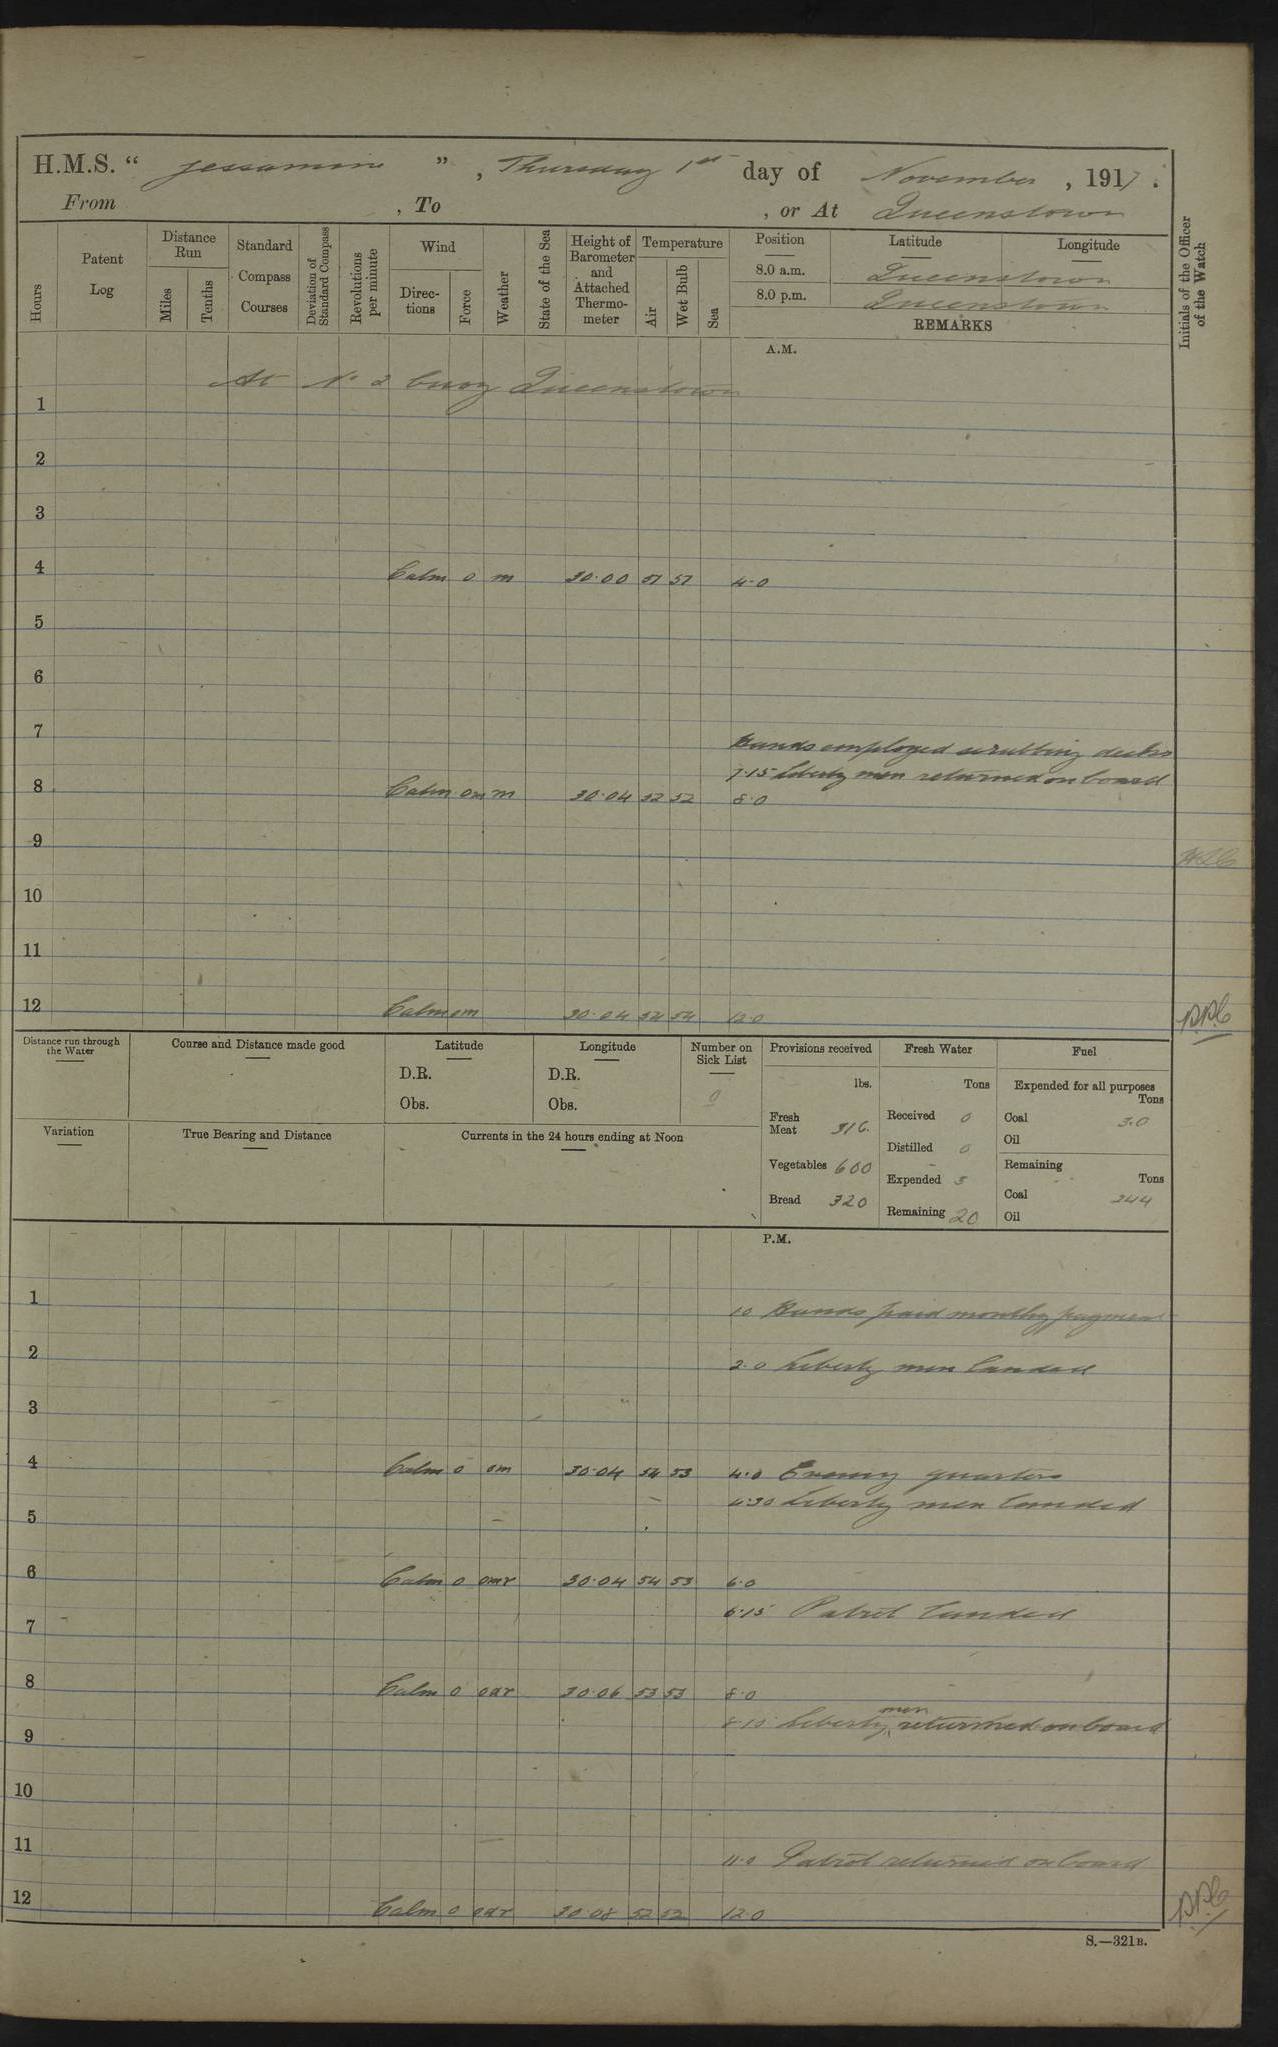 H.M.S. “ Jessamine ”, Thursday 1st day of November, 1917.
From , To , or At Queenstown
Hours
Patent Log
Distance Run
Miles
Tenths
Standard Compass Courses
Deviation of Standard Compass
Revolutions per minute
Wind
Directions
Force
Weather
State of the Sea
Height of Barometer and Attached Thermometer
Temperature
Air
Wet Bulb
Sea
Position
Latitude
Longitude
8.0 a.m. Queenstown
8.0 p.m. Queenstown
REMARKS
Initials of the Officer of the Watch
A.M.
At No 2 buoy Queenstown
1
2
3
4 Calm 0 m 30.00 51 51 4.0
5
6
7
Hands employed scrubbing decks
7.15 Liberty men returned on board
8 Calm om m 30.04 52 52 8.0
9
10
11
12 Calm om 30.04 52 54 12.0
Distance run through the Water
Course and Distance made good
Latitude
D.R.
Obs.
Longitude
D.R.
Obs.
Number on Sick List
0
Provisions received
lbs.
Fresh Meat 316.
Vegetables 600
Bread 320
Fresh Water
Tons
Received 0
Distilled 0
Expended 5
Remaining 20
Fuel
Expended for all purposes
Tons
Coal 3.0
Oil
Remaining
Tons
Coal 244
Oil
Variation
True Bearing and Distance
Currents in the 24 hours ending at Noon
P.M.
1
10 Hands paid monthly payment
2
2.0 Liberty men landed
3
4 Calm 0 om 30.04 54 53 4.0 Evening quarters
4.30 Liberty men landed
5
6 Calm 0 omr 30.04 54 53 6.0
6.15 Patrol landed
7
8 Calm 0 odr 30.06 53 53 8.0
8.10 Liberty men returned on board
9
10
11
11.0 Patrol returned on board
12 Calm 0 odr 30.08 52 52 12.0
S.—321B.